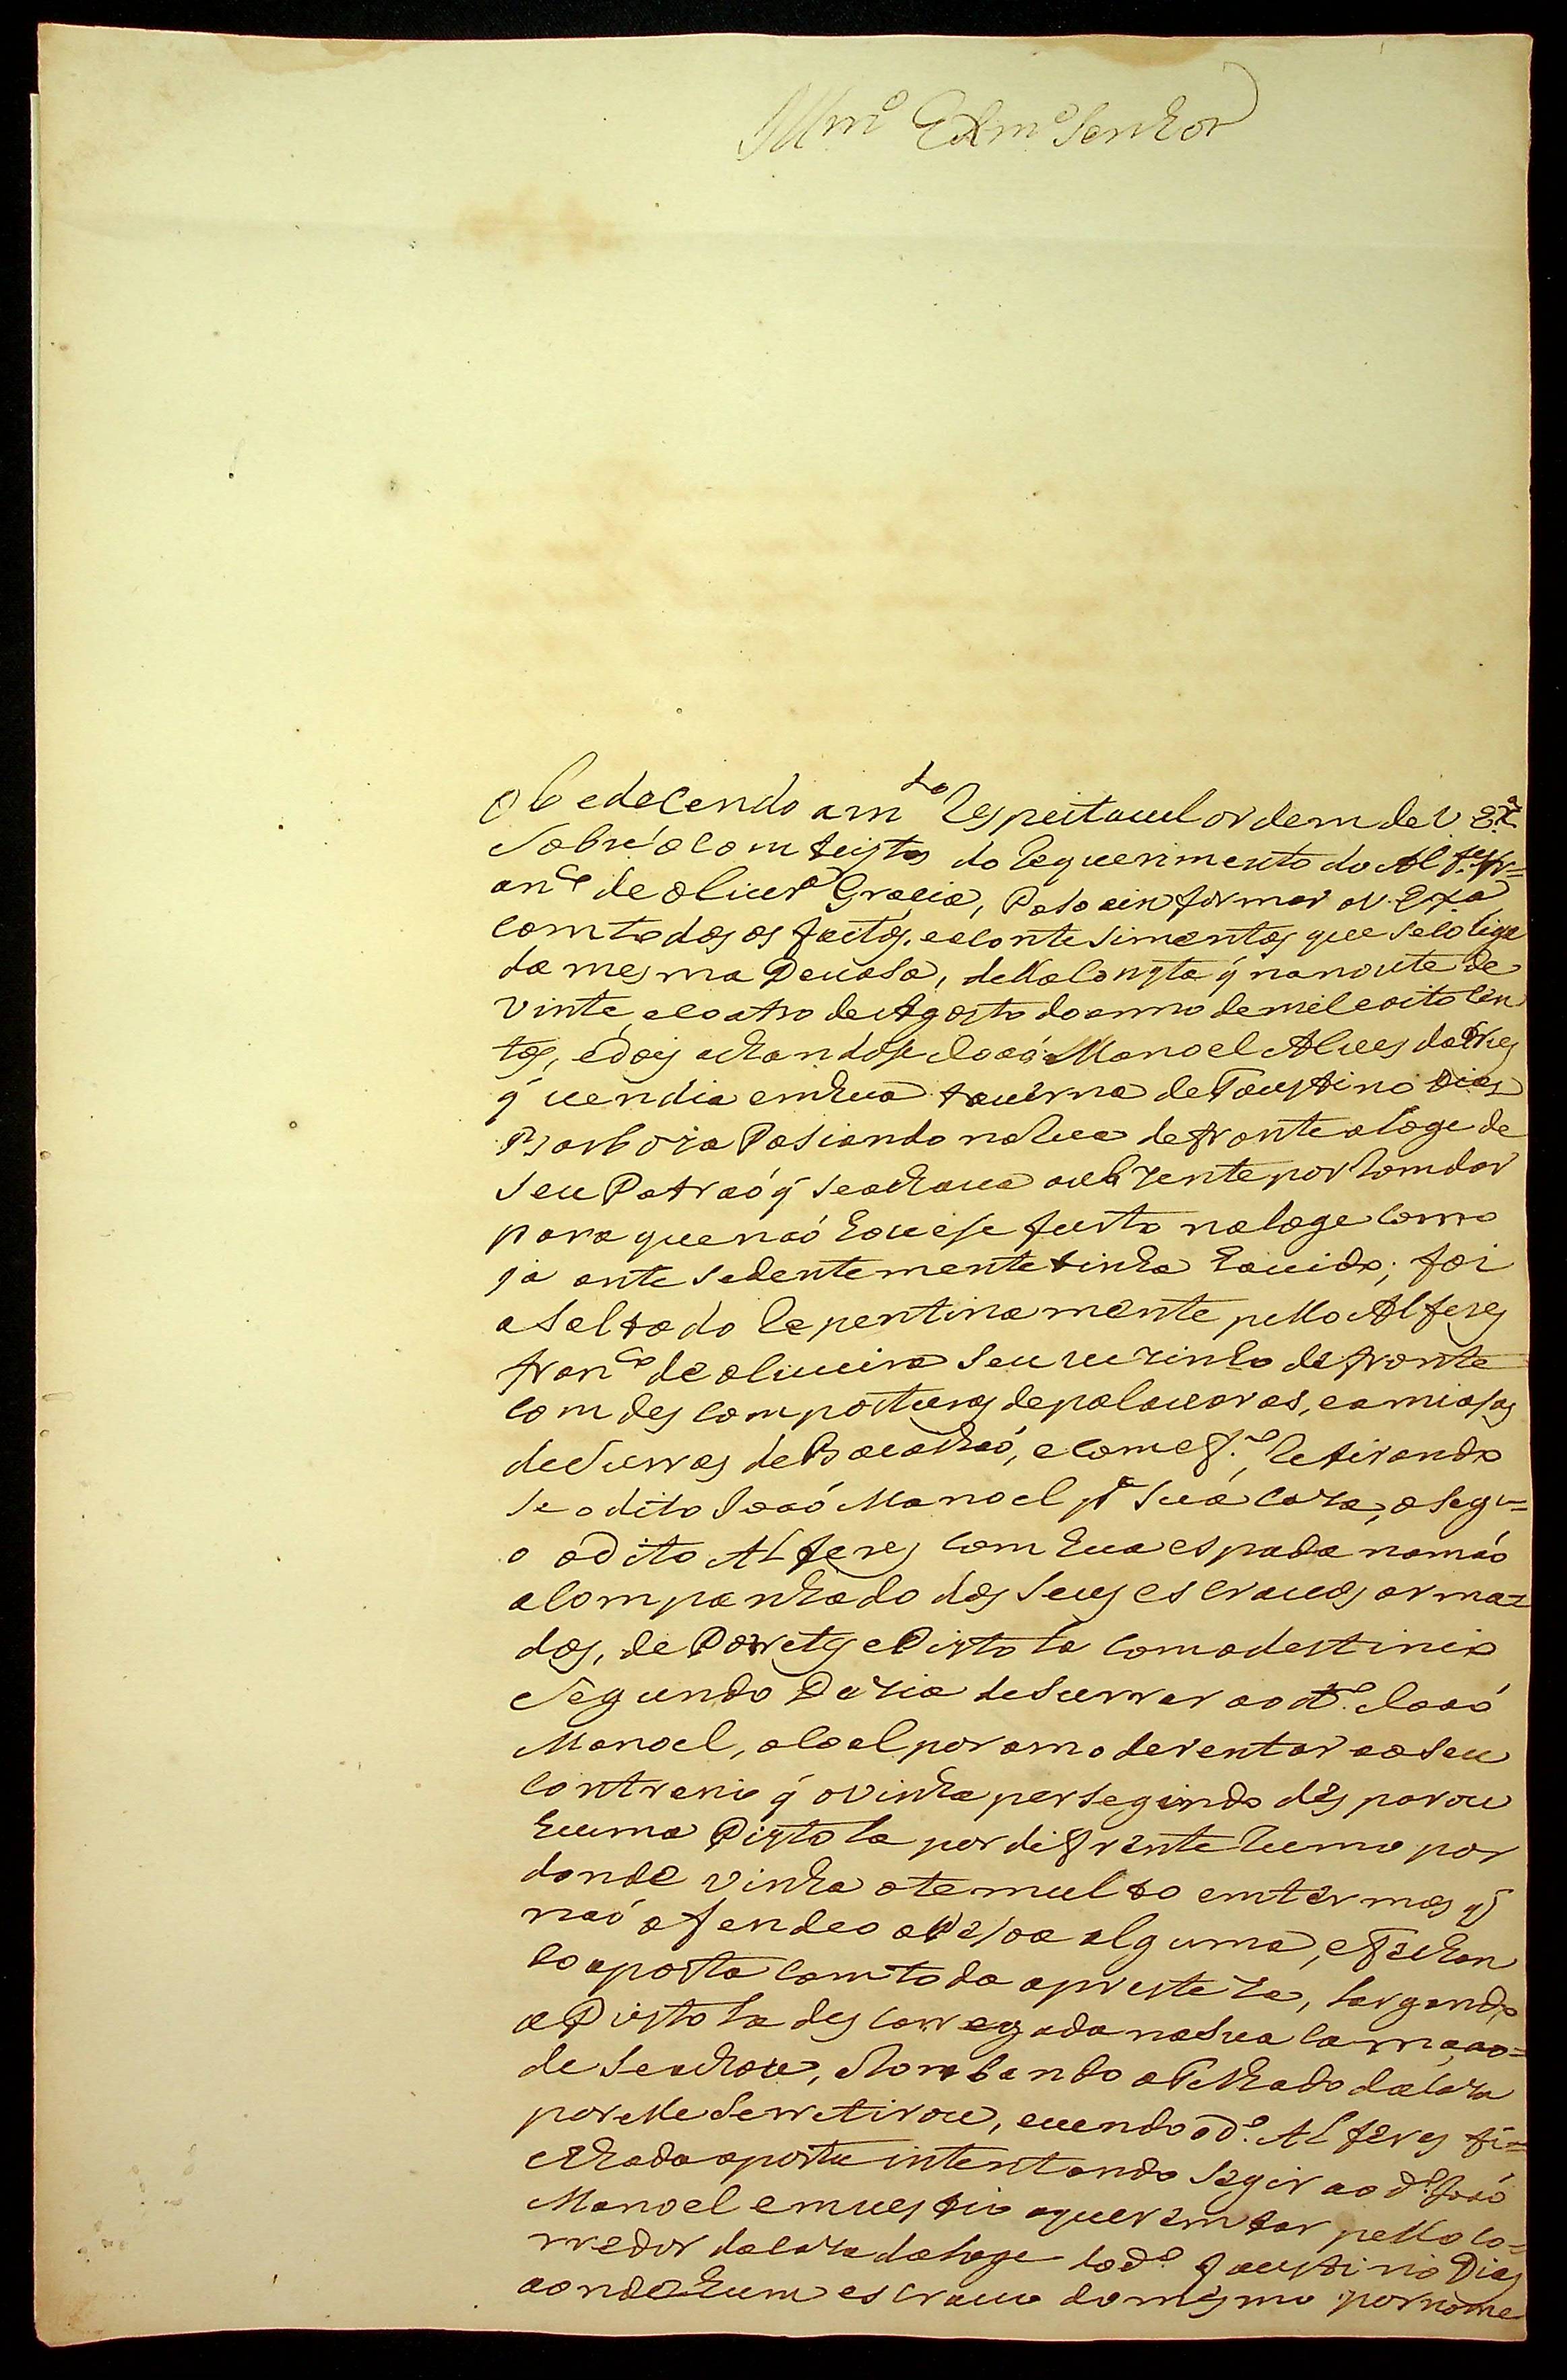 Illmº Exmº Senhor
Obedecendo a mto Respeitavel ordem de V Exª
Sobre o comteisto do Requerimento do Alfes Fr=
ancº de olivrª Gracia, Paso ainformar a V. Exa
com todos os factos, eacontesimentos que se coligi
da mesma Devasa, della consta q̃ nanoute de
vinte, ecoatro de Agosto do anno de mil eoito cen
tos, edois achandose Joaó Manoel Alves da
q̃ vendia emhua taverna de Faustino Dias
Barboza Pasiando na Rua defronte a loge de
seu Patraó q̃ seachava auzente por Rondar
para que naó houese furto na loge como
ja antesedentemente tinha havido; foi
asaltado Repentinamente pello Alferes
franco de oliveira seu vezinho defronte
com descomposturas de palavaras, eamiasas
de Surras de Bacalháo, ecom efº, Retirando
se o dito Joaó Manoel pª Sua caza, o segu=
o odito Alferes com hua espada namáo
acompanhado dos seus escravos arma=
dos, de Porretes ePistola comodestinio
segundo Dizia deSurrar ao dº Joaó
Manoel, o coal por amoderentar aoseu
contrario q̃ ovinha persegindo disparou
huma Pistola por difrente Rumo por
donde vinha otemulto emtermos q̃
naó ofendeo aPesoa alguma, efechan
do aporta com toda apresteza, largando
aPistola descarregada nasua cama, ao=
de seachou, Rombando oTelhado dacaza
por elle serretirou, evendo odº. Alferes fe=
chada aporta intentando segir ao dº Joaó
Manoel emvestio aquerer entrar pello co=
rredor dacaza da loge do dº faustino Dias
aonde hum escravo domesmo por nome